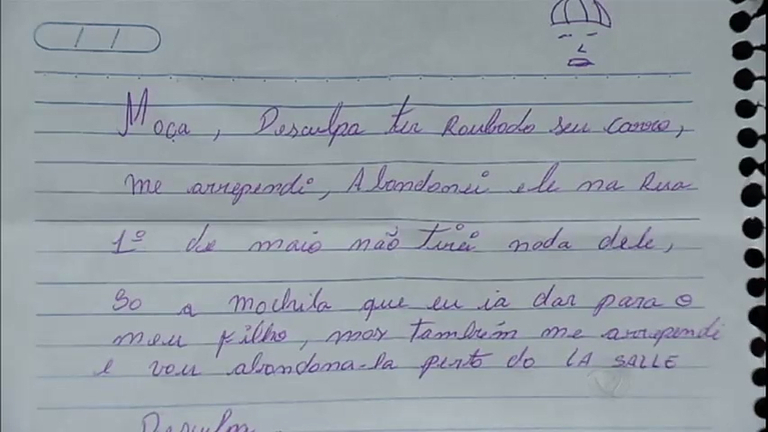 Moça, Desculpa ter Roubado seu carro,
me arrependi, Abandonei ele na Rua
1º de maio não tirei nada dele,
So a mochila que eu ia dar para o
meu filho, mas também me arrependi
e vou abandona-la perto do LA SALLE